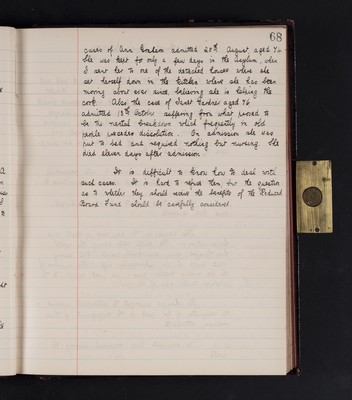 68
cases of Ann Gordon admitted 28th August, aged 74.
She was kept for only a few days in the Asylum, when
I sent her to one of the detached houses where she
sat herself down in the kitchen where she has been
moving about ever since, believing she is helping the
cook. Also the case of Janet Gardner aged 76
admitted 13th October suffering from what proved to
be the mental breakdown which frequently in old
people precedes dissolution. On admission she was
put to bed and required nothing but nursing. She
died eleven days after admission.
It is difficult to know how to deal with
such cases. It is hard to refuse them but the question
as to whether they should receive the benefits of the Reduced
Board Fund should be carefully considered.